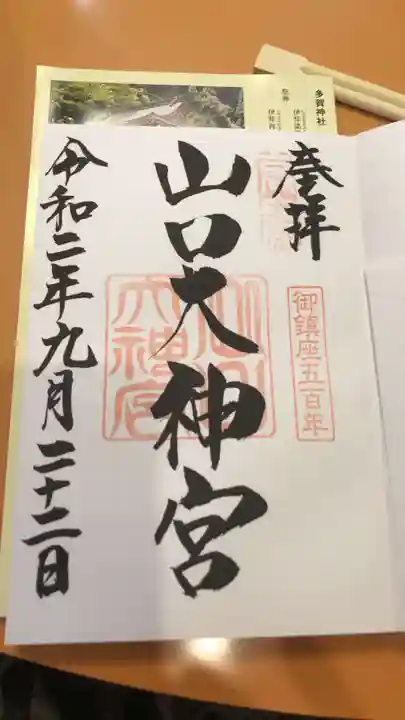 多賀神社
祭神
登拝
御鎮座五百年
山口大神宮
令和二年九月二十二日